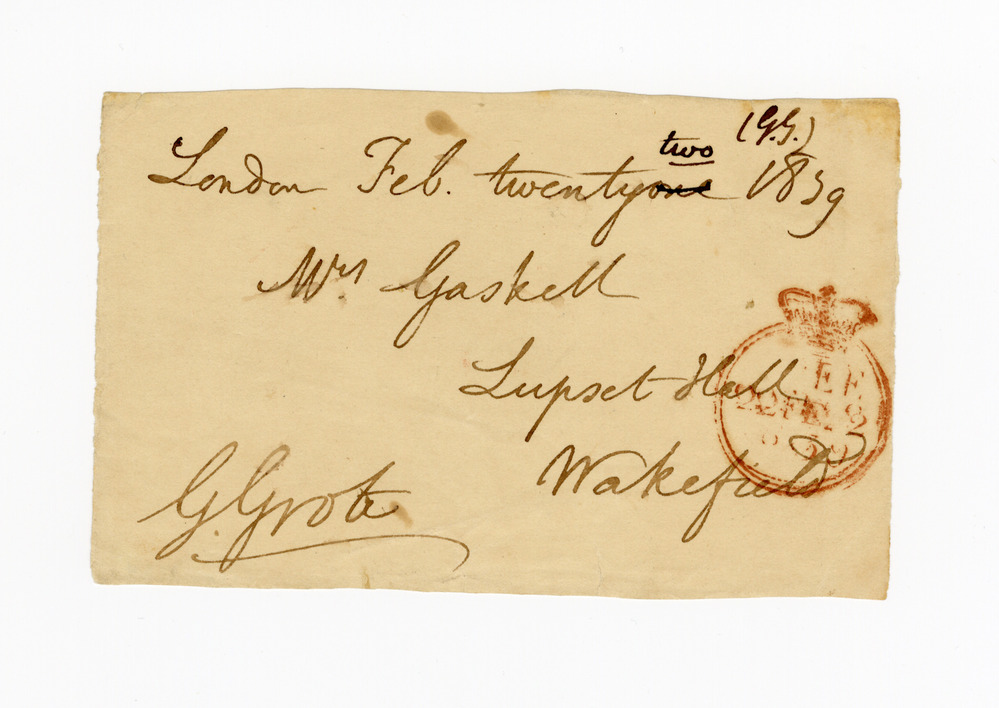 (G.G.)
two
London Feb. twentyone 1839
Mrs Gaskell
Lupset Hall
Wakefield
G. Grote
22 FE 22